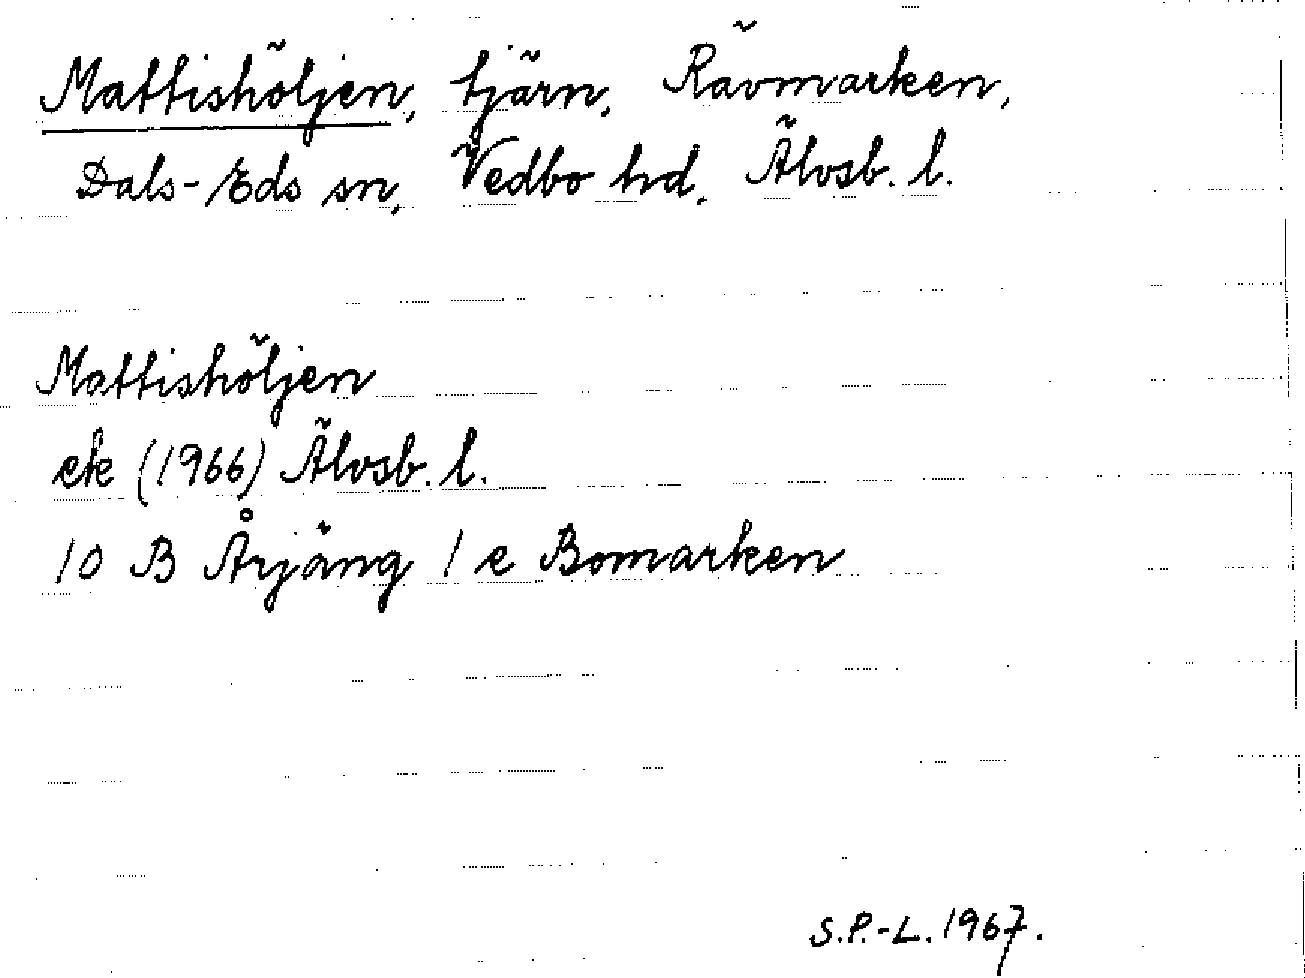 Mattishöljen, tjärn, Rävmarken,
Dals-Eds sn, Vedbo hd, Älvsb. l.
Mattishöljen
ek (1966) Älvsb. l.
10 B Årjäng 1 e Bomarken
S.P.-L. 1967.